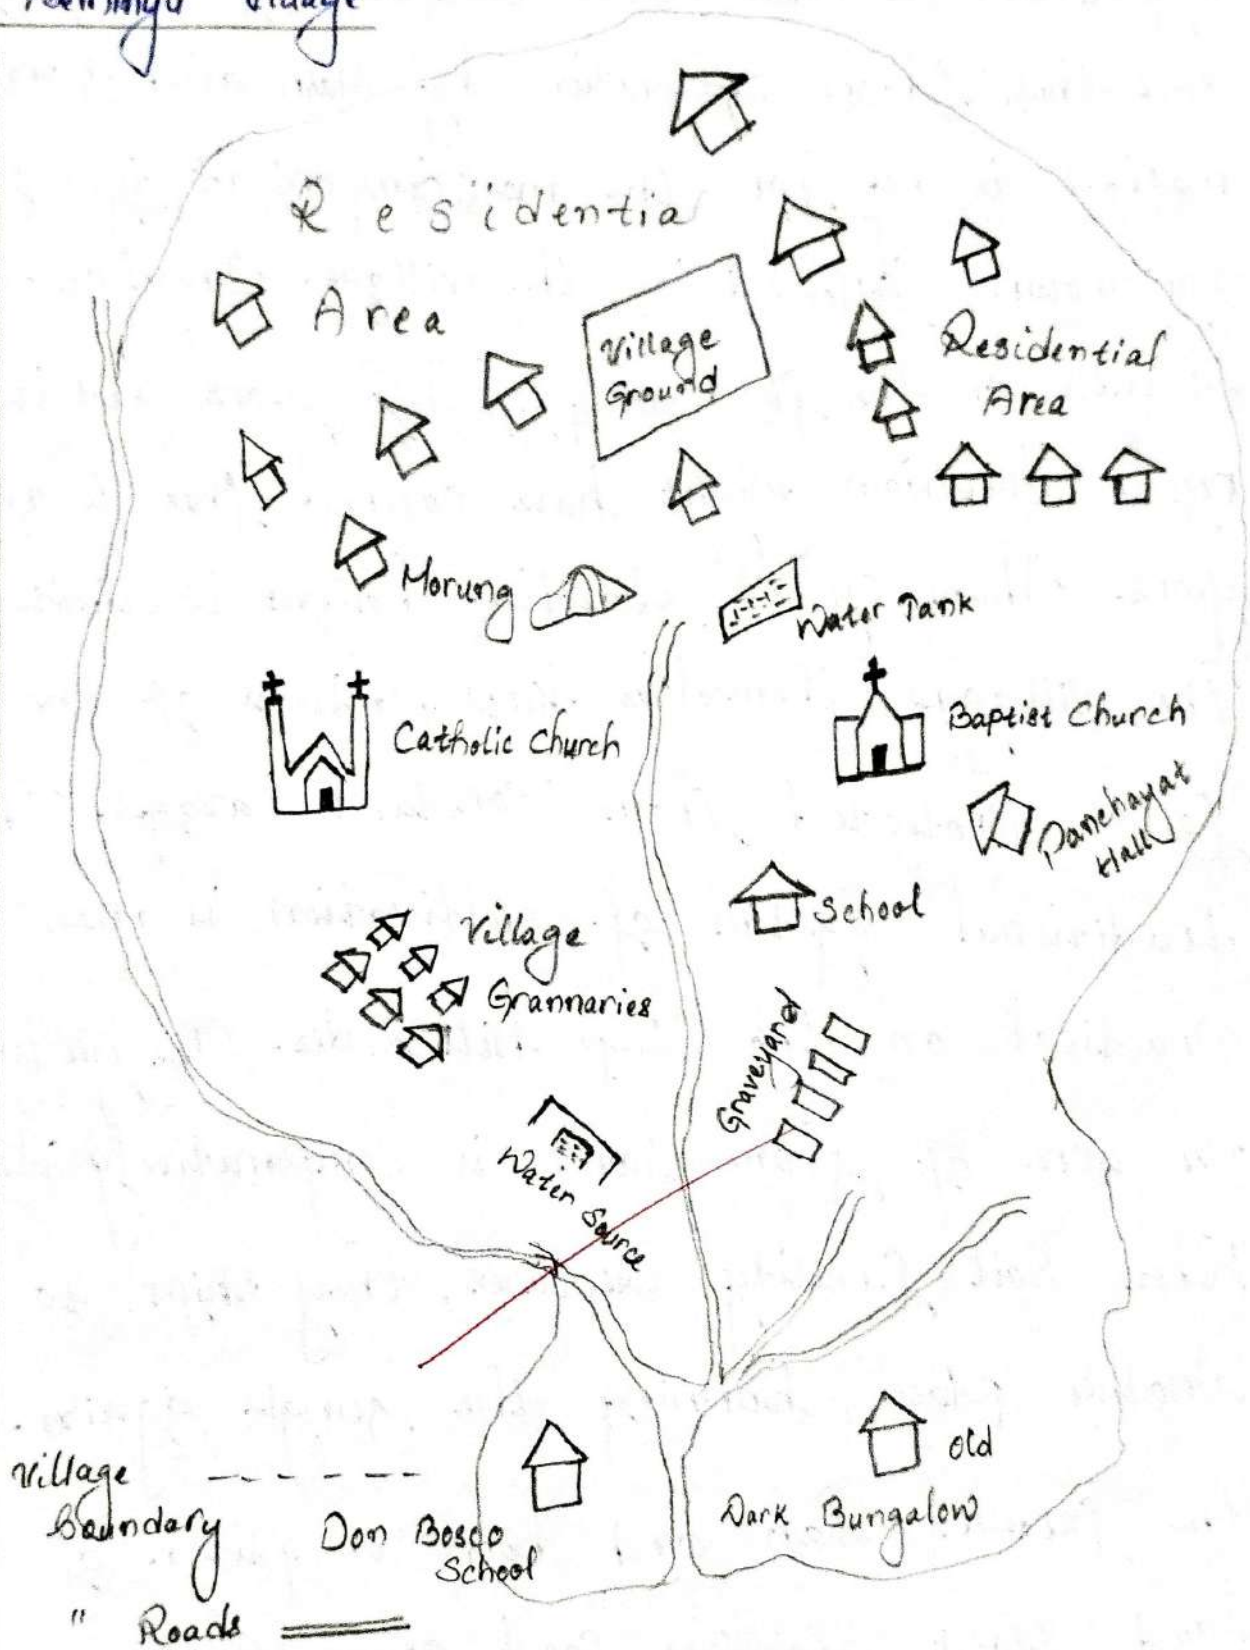 Village
Residentia
Area
Village
Ground
Residential
Area
Morung
Water Tank
Catholic Church
Baptist Church
Panchayat
Hall
School
Village
Grannaries
Graveyard
Water Source
Old
Dark Bungalow
Village
Boundary
Don Bosco
School
" Roads